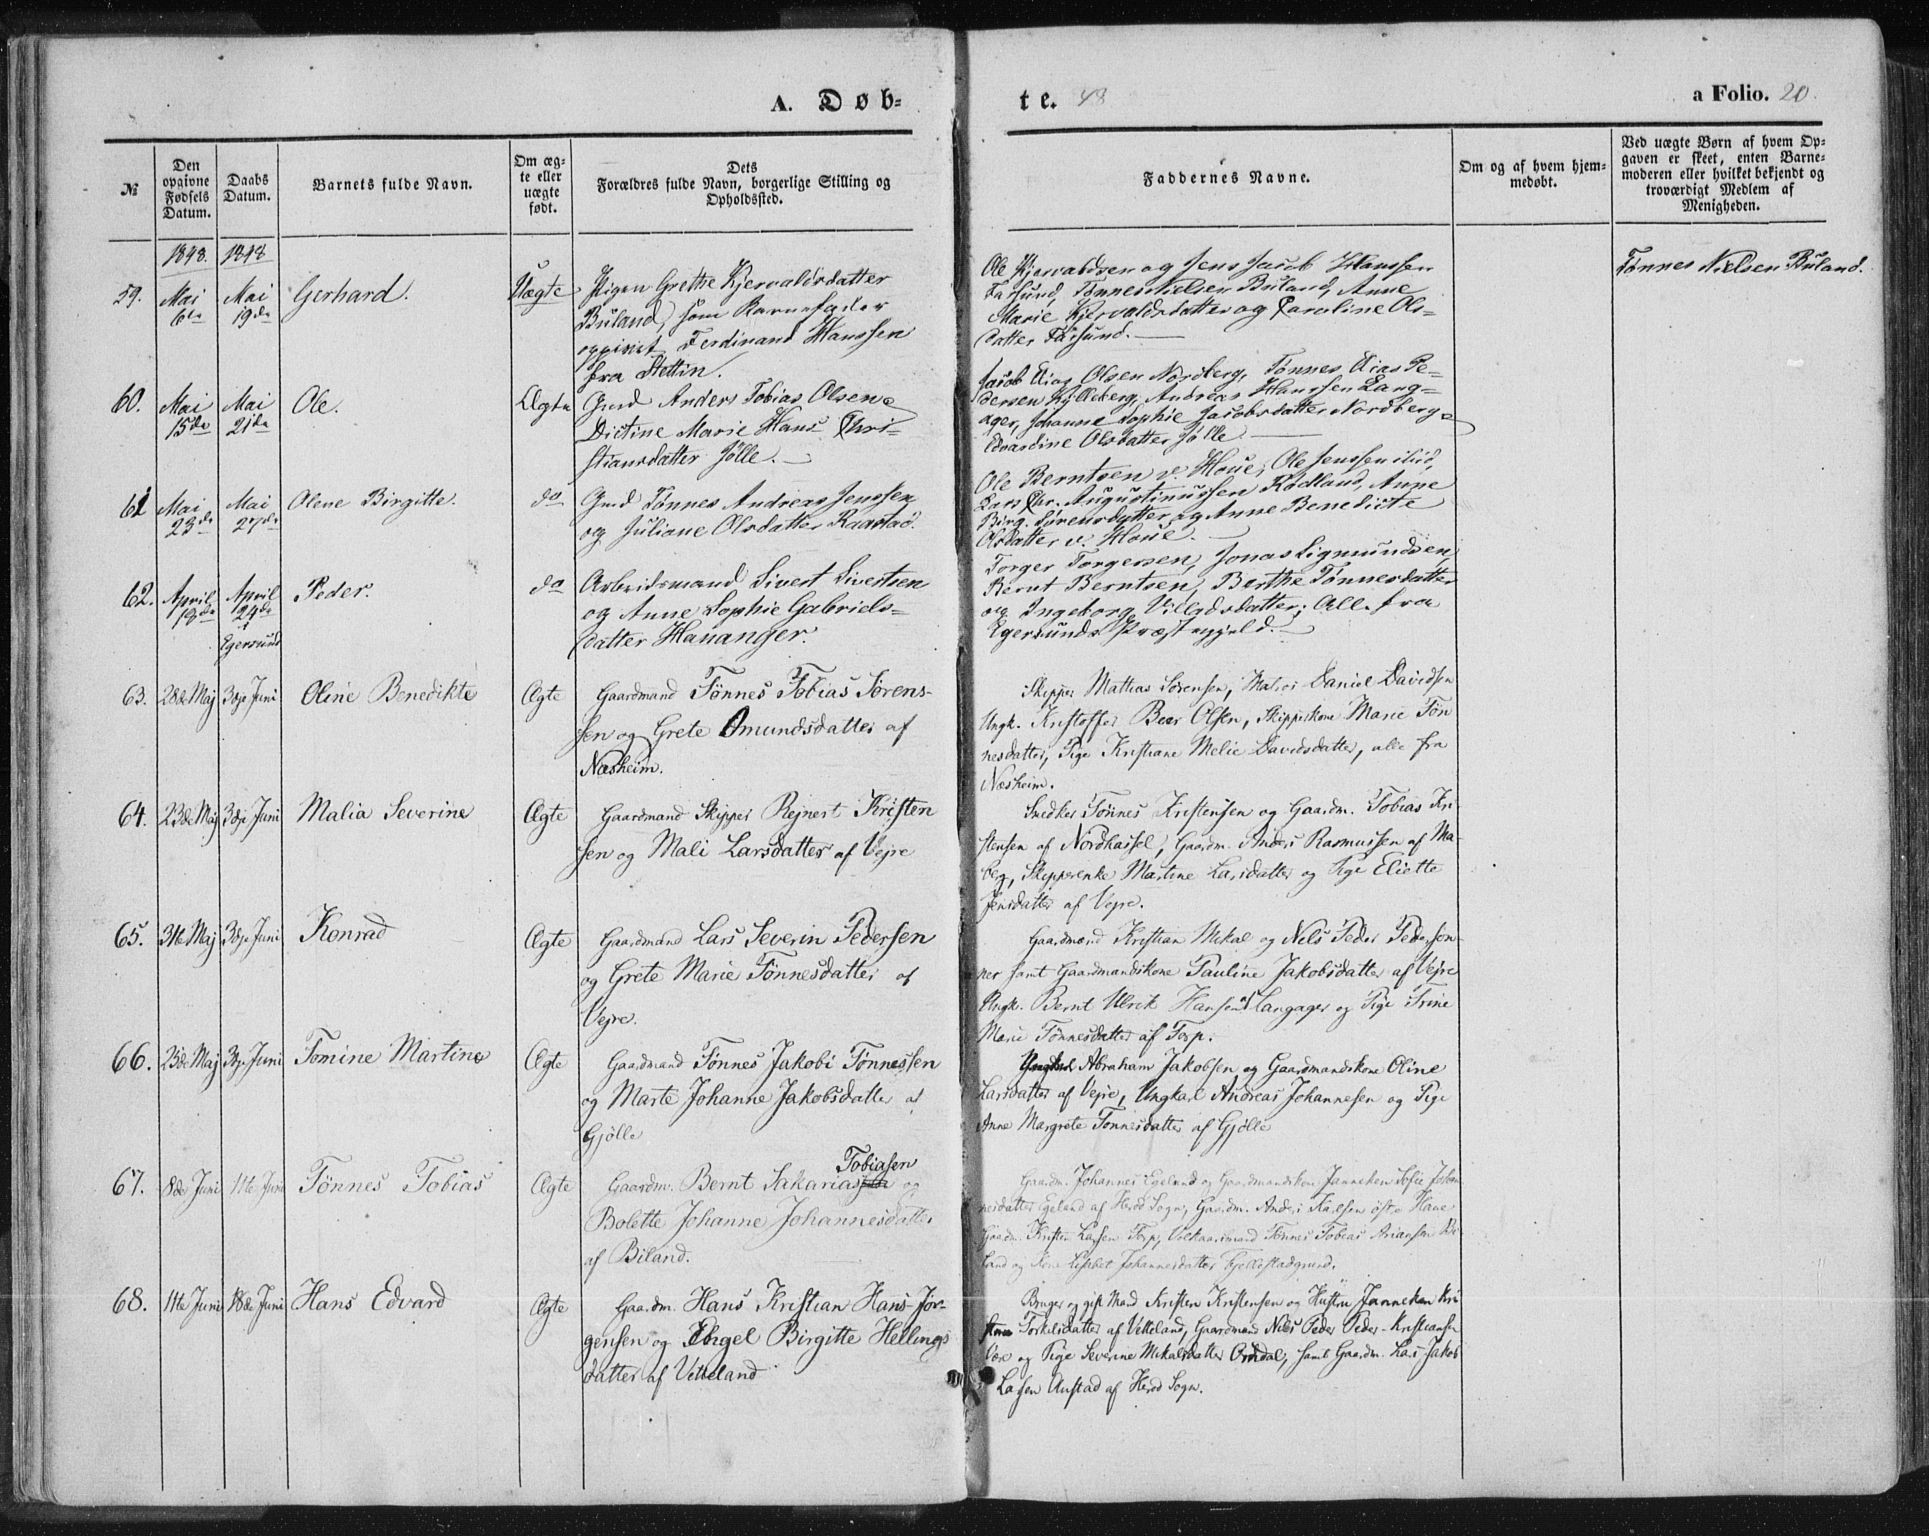 A. Døb-
te. 48
a Folio. 20.
№
Den opgivne Fødsels Datum.
Daabs Datum.
Barnets fulde Navn.
Om æg-
te eller
uægte
født.
Dets
Forældres fulde Navn, borgerlige Stilling og
Opholdssted.
Faddernes Navne.
Om og af hvem hjem-
medøbt.
Ved uægte Børn af hvem Op-
gaven er skeet, enten Barne-
moderen eller hvilket bekjendt og
troværdigt Medlem af
Menigheden.
1848. 1848
59. Mai 6te Mai 19de Gerhard. Uægte
Pigen Grethe Kjervaldsdatter
Büland, som Barnefader
opgivet Ferdinand Hanssen
fra Stettin.
Ole Kjervaldsen og Jens Jacob Hanssen
Farsund, Tønnes Nielsen Büland, Anne
Marie Kjervaldsdatter og Caroline Ols-
datter Farsund.
Tønnes Nielsen Büland.
60. Mai 15de Mai 21de Ole. Ægte
Gmd Anders Tobias Olsen og
Dictine Marie Hans Chri-
stiansdatter Jølle.
Jacob Aias Olsen Nordberg, Tønnes Aias Pe-
dersen Kjilleberg, Andreas Hanssen Lang-
ager, Johanne Sophie Jacobsdatter Nordberg
Edvardine Olsdatter Jølle
61 Mai 23de Mai 27de Olene Birgitte. do
Gmd Tønnes Andreas Jenssen
og Juliane Olsdatter Raastad.
Ole Berntsen v. Haue, Ole Jenssen ibid,
Lars Chr. Augustinussen Rødland, Anne
Birg. Sørensdatter og Anne Benedicte
Olsdatter v. Haue.
62. April 19de April 24de i Egersund Peder. do
Arbeidsmand Sivert Sivertsen
og Anne Sophie Gabriels-
datter Hauanger.
Torger Torgersen, Jonas Sigmundsen
Bernt Berntsen, Berthe Tønnesdatter
og Ingeborg Villadsdatter; Alle fra
Egersunds Præstegjeld.
63. 28de Maj 3dje Juni Oline Benedikte Ægte
Gaardmand Tønnes Tobias Sørens-
sen og Grete Omundsdatter af
Næsheim.
Skipper Mathias Sørensen, Matros Daniel Davidsen
Ungk. Kristoffer Beer Olsen, Skipperkone Marie Tøn
nesdatter, Pige Kristiane Melie Davidsdatter, alle fra
Næsheim.
64. 23de Maj 3dje Juni Malia Severine Ægte
Gaardmand Skipper Rejnert Kristen
sen og Mali Larsdatter af Vejre
Snedker Tønnes Kristensen og Gaardm. Tobias Kri
stensen af Nordhassel, Gaardm. Anders Rasmussen af Ma-
berg, Skipperenke Martine Larsdatter og Pige Eliette
Jensdatter af Vejre.
65. 31te Maj 3dje Juni Konrad Ægte
Gaardmand Lars Severin Pedersen
og Grete Marie Tønnesdatter af
Vejre.
Gaardmænd Kristian Mikal og Nels Peder Pederson-
ner samt Gaardmandskone Pauline Jakobsdatter af Vejre
Ungk. Bernt Ulrik Hansen af Langager og Pige Trine
Marie Tønnesdatter af Torp.
66. 23de Maj 3dje Juni Tomine Martine Ægte
Gaardmand Tønnes Jakobi Tønnessen
og Marte Johanne Jakobsdatter af
Gjølle
Ungkarl Abraham Jakobsen og Gaardmandskone Oline
Larsdatter af Vejre, Ungkarl Andreas Johannesen og Pige
Anne Margrete Tønnesdatter af Gjølle
67. 8de Juni 11te Juni Tønnes Tobias Ægte
Tobiasen
Gaardm. Bernt Sakarias og
Bolette Johanne Johannesdatter
af Biland.
Gaardm. Johannes Egeland og Gaardmandskone Janneken Sofie Johan
nesdatter Egeland af Herod Sogn, Gaardm. Anders Karlsen østre Haue
Gaardm. Kristen Larsen Torp, Vilkaarsmand Tønnes Tobias Ariansen Bi
land og Kone Lisabet Johannesdatter Fjellestadgrund.
68. 11te Juni 18de Juni Hans Edvard Ægte
Gaardm. Hans Kristian Hans-Jør-
gensen og Engel Birgitte Hellings
datter af Vetteland
Bruger og gift Mand Kristen Kristensen og Hustru Janneken Kri
stine Torkilsdatter af Vetteland, Gaardmand Nils Peder Peder-Kristiansen
Øre og Pige Severine Mikalsdatter Omdal, samt Gaardm. Lars Jakob
Larsen Austad af Herod Sogn.